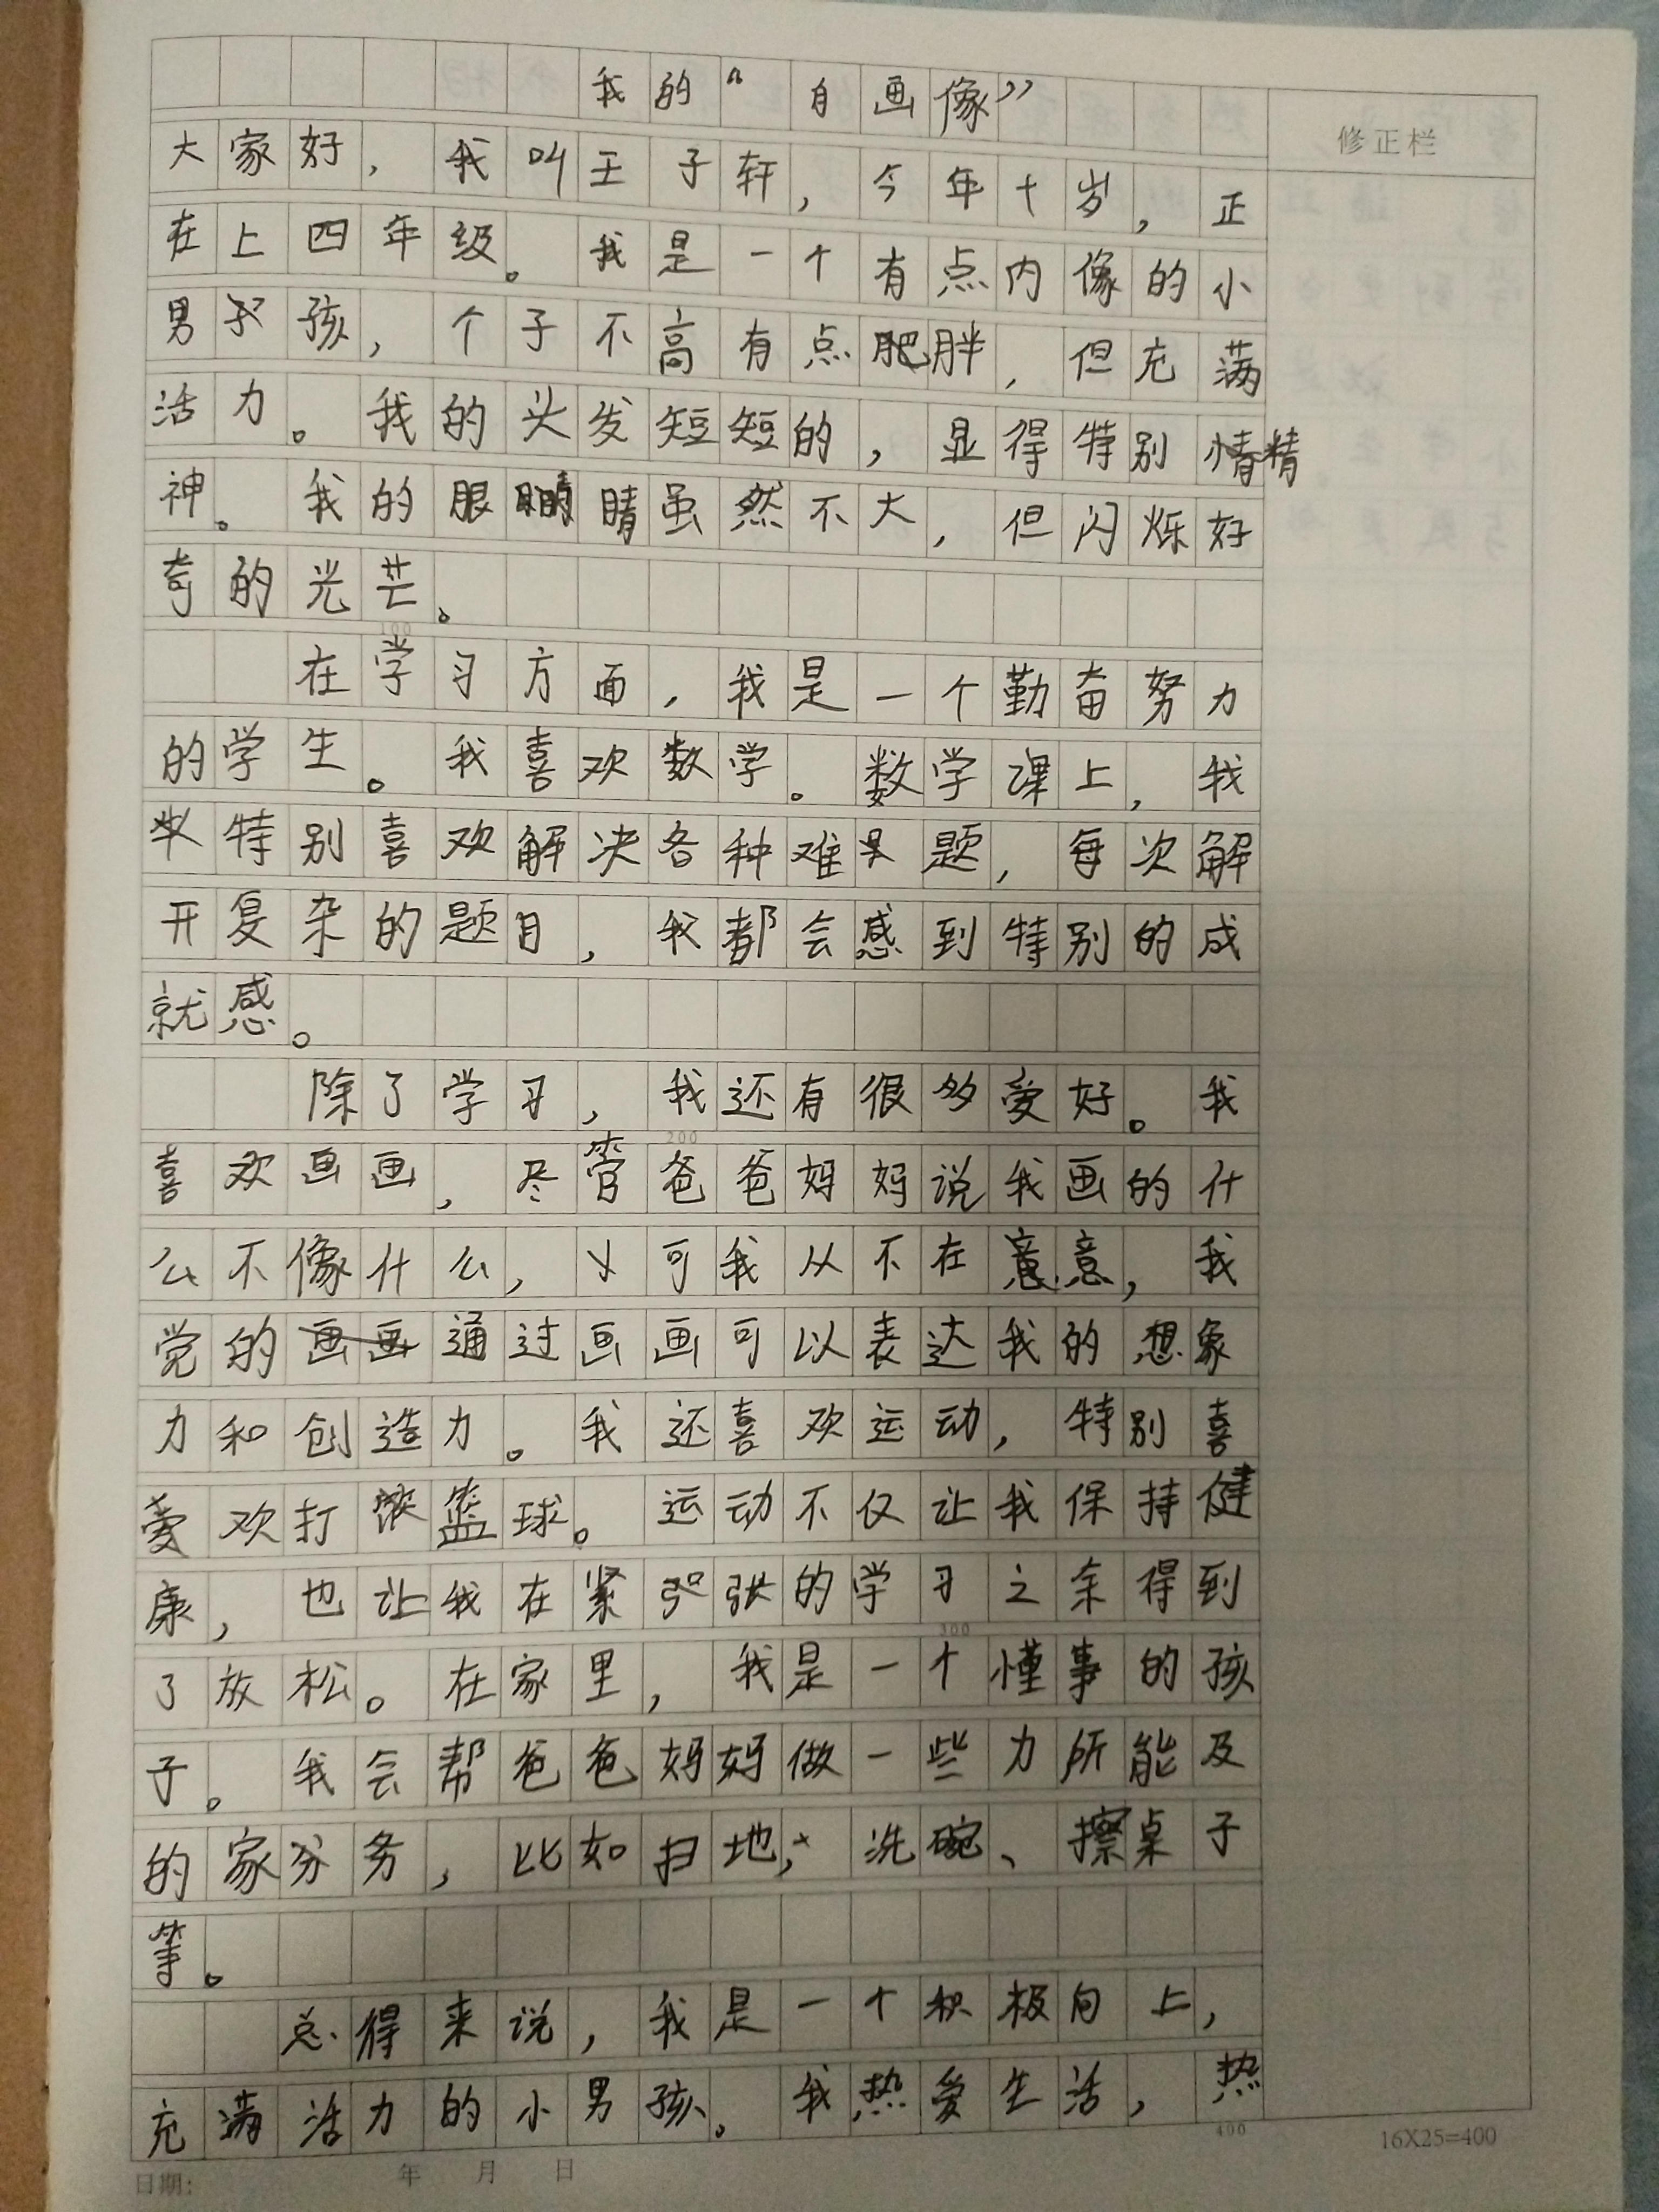 我的“自画像”
修正栏
大家好，我叫王子轩，今年十岁，正
在上四年级。我是一个有点内像的小
男孩，个子不高有点肥胖，但充满
活力。我的头发短短的，显得特别精
神。我的眼睛虽然不大，但闪烁好
奇的光芒。
100
在学习方面，我是一个勤奋努力
的学生。我喜欢数学。数学课上，我
特别喜欢解决各种难题，每次解
开复杂的题目，我都会感到特别的成
就感。
除了学习，我还有很多爱好。我
200
喜欢画画，尽管爸爸妈妈说我画的什
么不像什么，可我从不在意，我
觉的通过画画可以表达我的想象
力和创造力。我还喜欢运动，特别喜
欢打篮球。运动不仅让我保持健
康，也让我在紧张的学习之余得到
300
了放松。在家里，我是一个懂事的孩
子。我会帮爸爸妈妈做一些力所能及
的家务，比如扫地，洗碗、擦桌子
等。
总得来说，我是一个积极向上，
充满活力的小男孩。我热爱生活，热
400
16X25=400
日期： 年 月 日